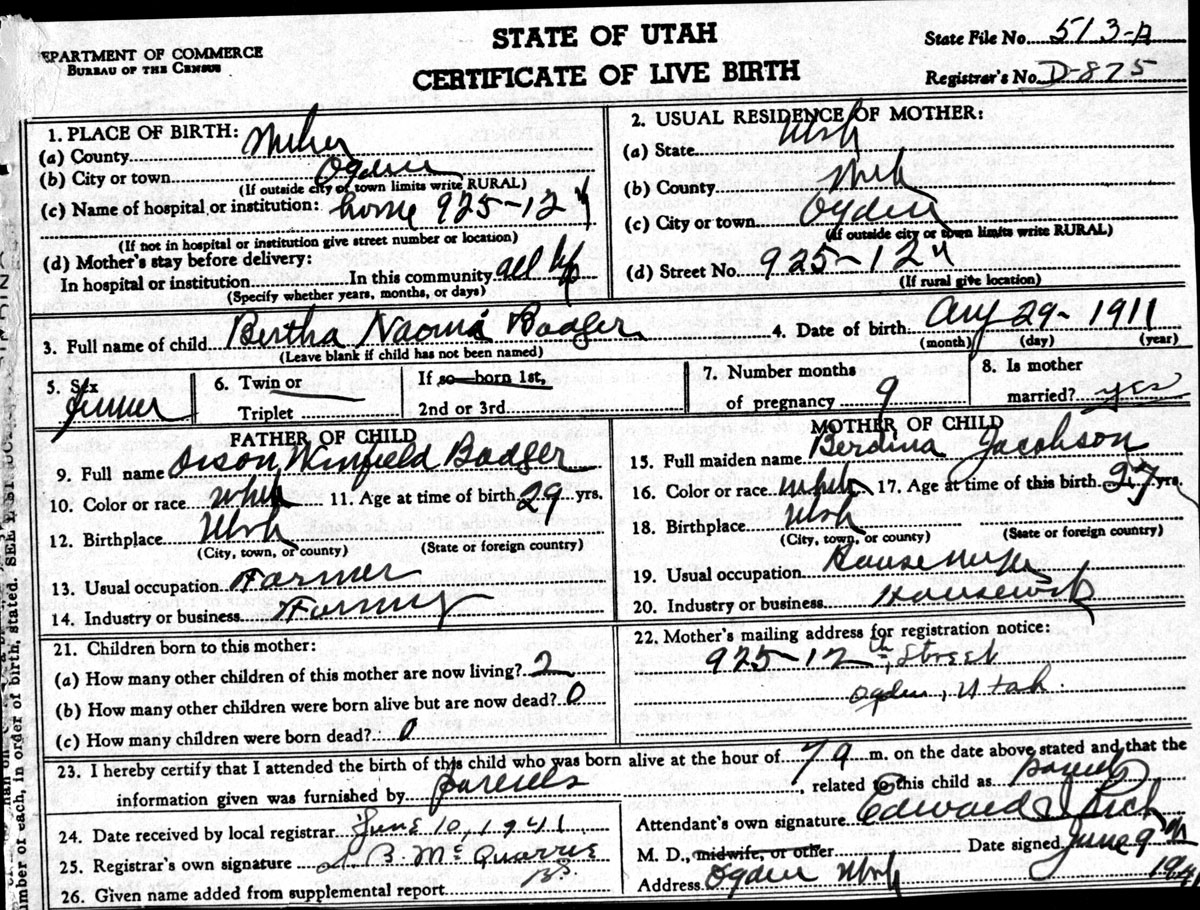 STATE OF UTAH
CERTIFICATE OF LIVE BIRTH
EPARTMENT OF COMMERCE
BUREAU OF THE CENSUS
State File No. 513-A
Registrar's No. D-875
1. PLACE OF BIRTH:
(a) County
(b) City or town Ogden
(If outside city or town limits write RURAL)
(c) Name of hospital or institution: home 925-12
(If not in hospital or institution give street number or location)
(d) Mother's stay before delivery:
In hospital or institution In this community all life
(Specify whether years, months, or days)
2. USUAL RESIDENCE OF MOTHER:
(a) State Utah
(b) County
(c) City or town Ogden
(If outside city or town limits write RURAL)
(d) Street No. 925-12
(If rural give location)
3. Full name of child Bertha Naomi Badger
(Leave blank if child has not been named)
4. Date of birth Aug 29-1911
(month) (day) (year)
5. Sex
6. Twin or
Triplet
If so—born 1st,
2nd or 3rd
7. Number months
of pregnancy 9
8. Is mother
married? yes
FATHER OF CHILD
9. Full name Orson Winfield Badger
10. Color or race white 11. Age at time of birth 29 yrs.
12. Birthplace Utah
(City, town, or county) (State or foreign country)
13. Usual occupation Farmer
14. Industry or business Farming
MOTHER OF CHILD
15. Full maiden name Berdina Jacobson
16. Color or race white 17. Age at time of this birth 27 yrs.
18. Birthplace Utah
(City, town, or county) (State or foreign country)
19. Usual occupation Housewife
20. Industry or business Housework
21. Children born to this mother:
(a) How many other children of this mother are now living? 2
(b) How many other children were born alive but are now dead? 0
(c) How many children were born dead? 0
22. Mother's mailing address for registration notice:
925-12th Street
Ogden, Utah
23. I hereby certify that I attended the birth of this child who was born alive at the hour of 7 a m. on the date above stated and that the
information given was furnished by parents, related to this child as parents
24. Date received by local registrar June 10, 1941
25. Registrar's own signature B. McQuarrie
26. Given name added from supplemental report
Attendant's own signature Edward I Rich
M. D., midwife, or other Date signed June 9th
1941
Address Ogden Utah
umber of each, in order of birth, stated.